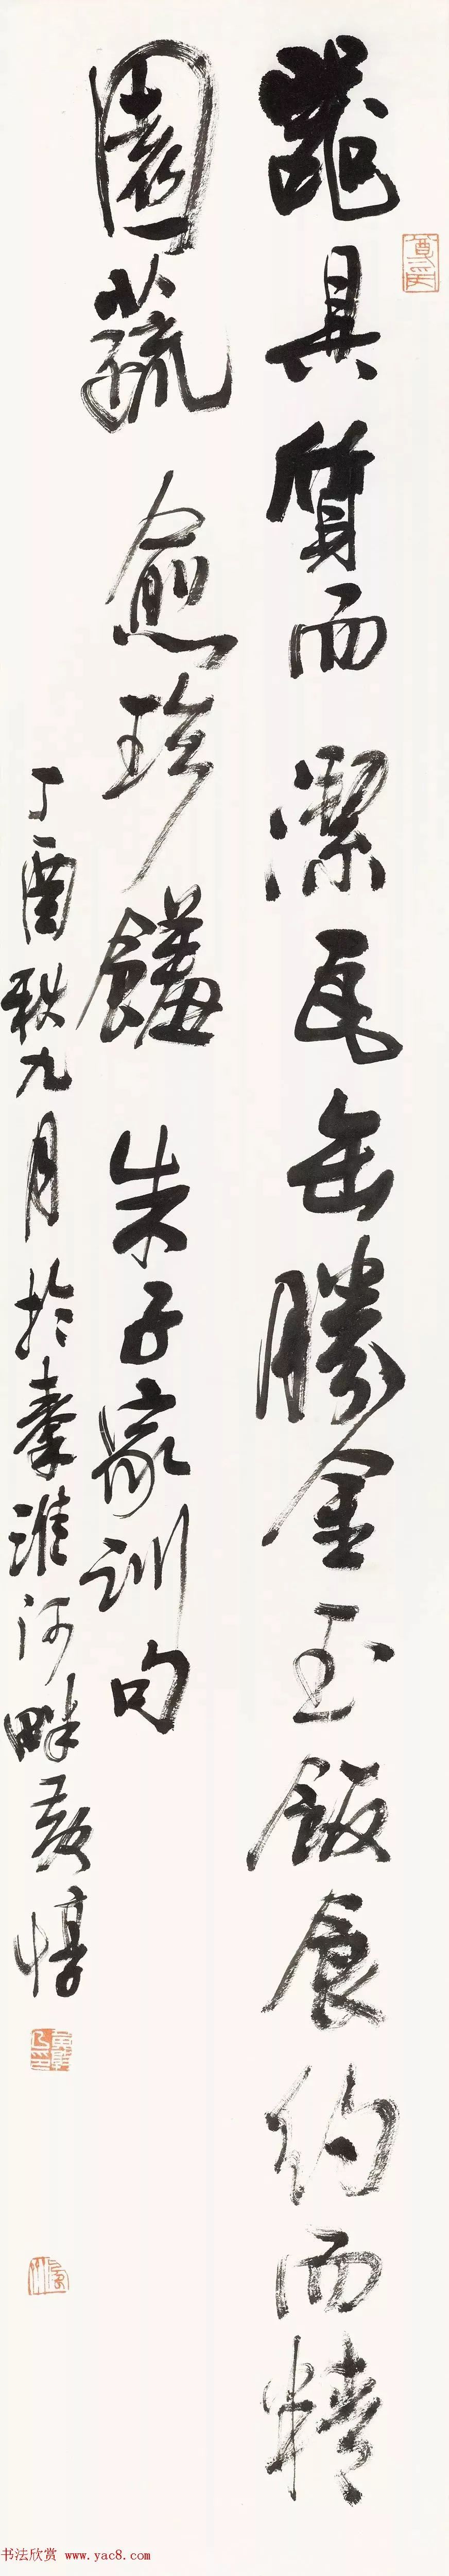 器具質而潔瓦缶勝金玉飯食約而精
園蔬愈珍饈 朱子家訓句
丁酉秋九月於秦淮河畔黃惇
书法欣赏 www.yac8.com